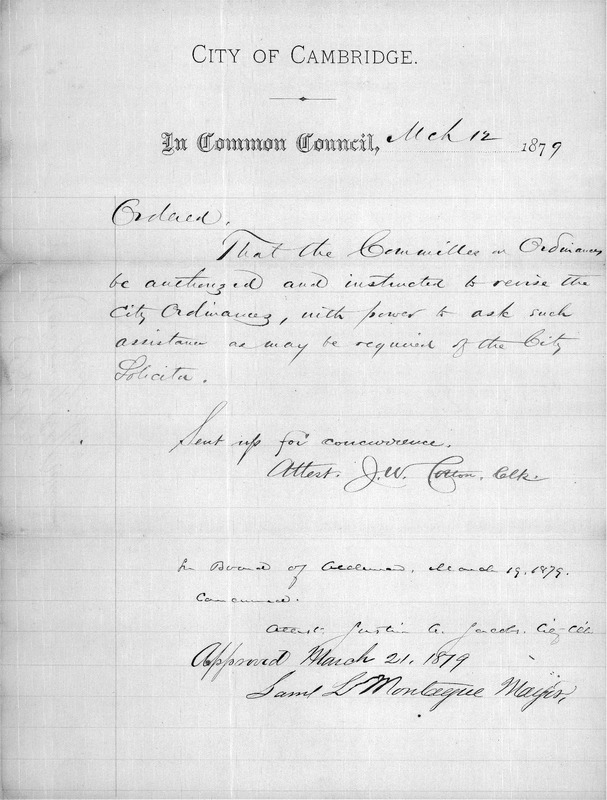 CITY OF CAMBRIDGE.
In Common Council, Mch 12 1879
Ordered.
That the Committee on Ordinances
be authorized and instructed to revise the
City Ordinances, with power to ask such
assistance as may be required of the City
Solicitor.
Sent up for concurrence.
Attest. J.W. Cotton. Clk.
In Board of Aldermen. March 19. 1879.
Concurred.
Attest Justin A. Jacobs. City Clk
Approved March 21. 1879
Saml L Montague Mayor,